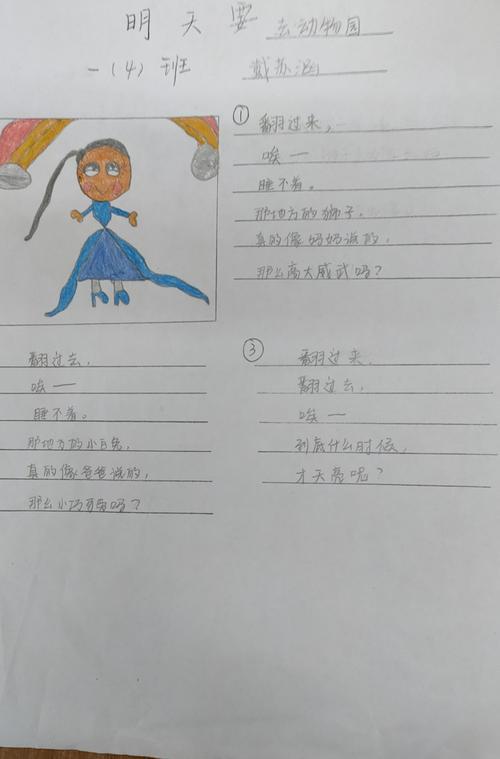 明天要 去动物园
一（4）班 戴苏涵
①
翻过来，
唉——
睡不着。
那地方的狮子，
真的像妈妈说的，
那么高大威武吗？
翻过去，
唉——
睡不着。
那地方的小白兔，
真的像爸爸说的，
那么小巧可爱吗？
③
翻过来，
翻过去，
唉——
到底什么时候，
才天亮呢？